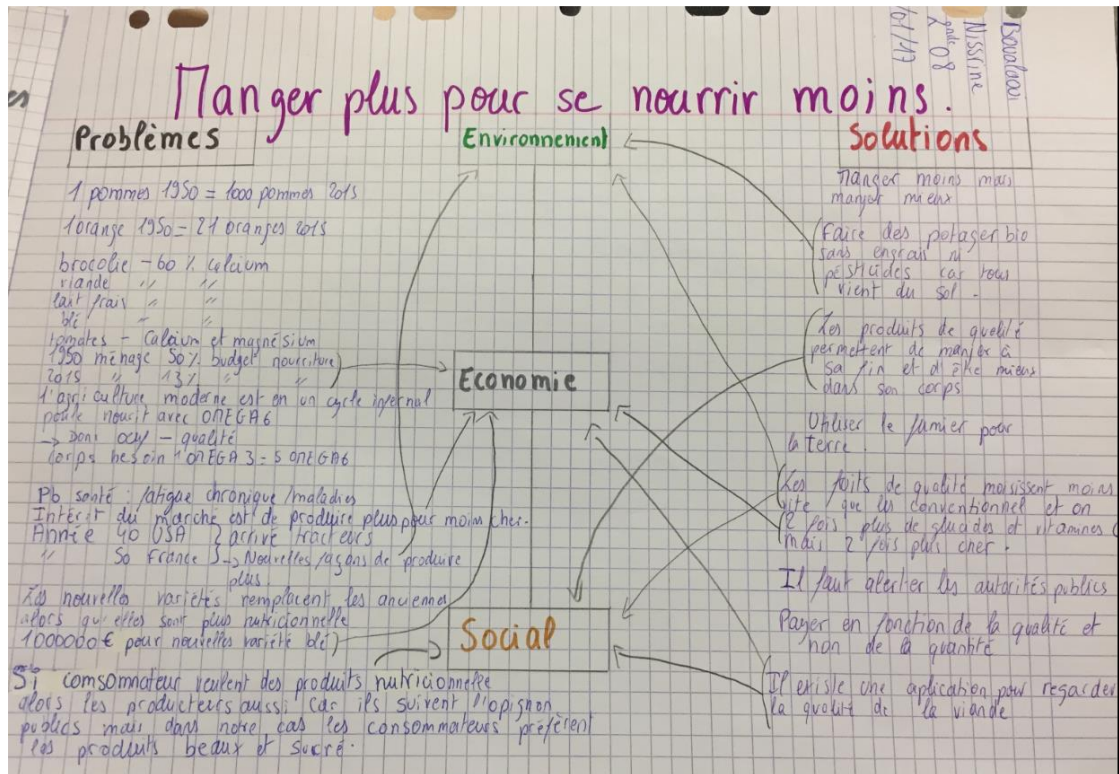 Boualaoui
Nissrine
2nde 08
Manger plus pour se nourrir moins.
Problèmes
1 pommes 1950 = 1000 pommes 2015
1 orange 1950 = 21 oranges 2015
brocolie - 60 % calcium
viande " "
lait frais " "
blé " "
tomates - Calcium et magnésium
1950 ménage 50 % budget nourriture
2015 " 13 % " "
l'agriculture moderne est en un cycle infernal
poule nourit avec OMEGA6
→ Donc - qualité
corps besoin 1 OMEGA 3 = 5 OMEGA6
Pb santé : fatigue chronique / maladies
Intérêt du marché est de produire plus pour moins cher.
Année 40 USA arrivé tracteurs
" 50 France → Nouvelles façons de produire
plus.
Les nouvelles variétés remplacent les ancienna
alors qu'elles sont plus nutricionnelle
1000000 € pour nouvelles variété blé
Si comsomnateur veulent des produits nutricionnelle
alors les producteurs aussi car ils suivent l'opignon
publics mais dans notre cas les consommateurs préfèrent
les produits beaux et sucré.
Environnement
Economie
Social
Solutions
Manger moins mais
manger mieux
Faire des potager bio
sans engrais ni
pesticides car tous
vient du sol.
Les produits de qualité
permettent de manger à
sa fin et d'être mieux
dans son corps
Utiliser le fumier pour
la terre.
Les foits de qualité moisissent moins
vite que les conventionnel et on
2 fois plus de glucides et vitamines
mais 2 fois plus cher.
Il faut alerter les autorités publics
Payer en fonction de la qualité et
non de la quantité
Il existe une aplication pour regarder
la qualité de la viande